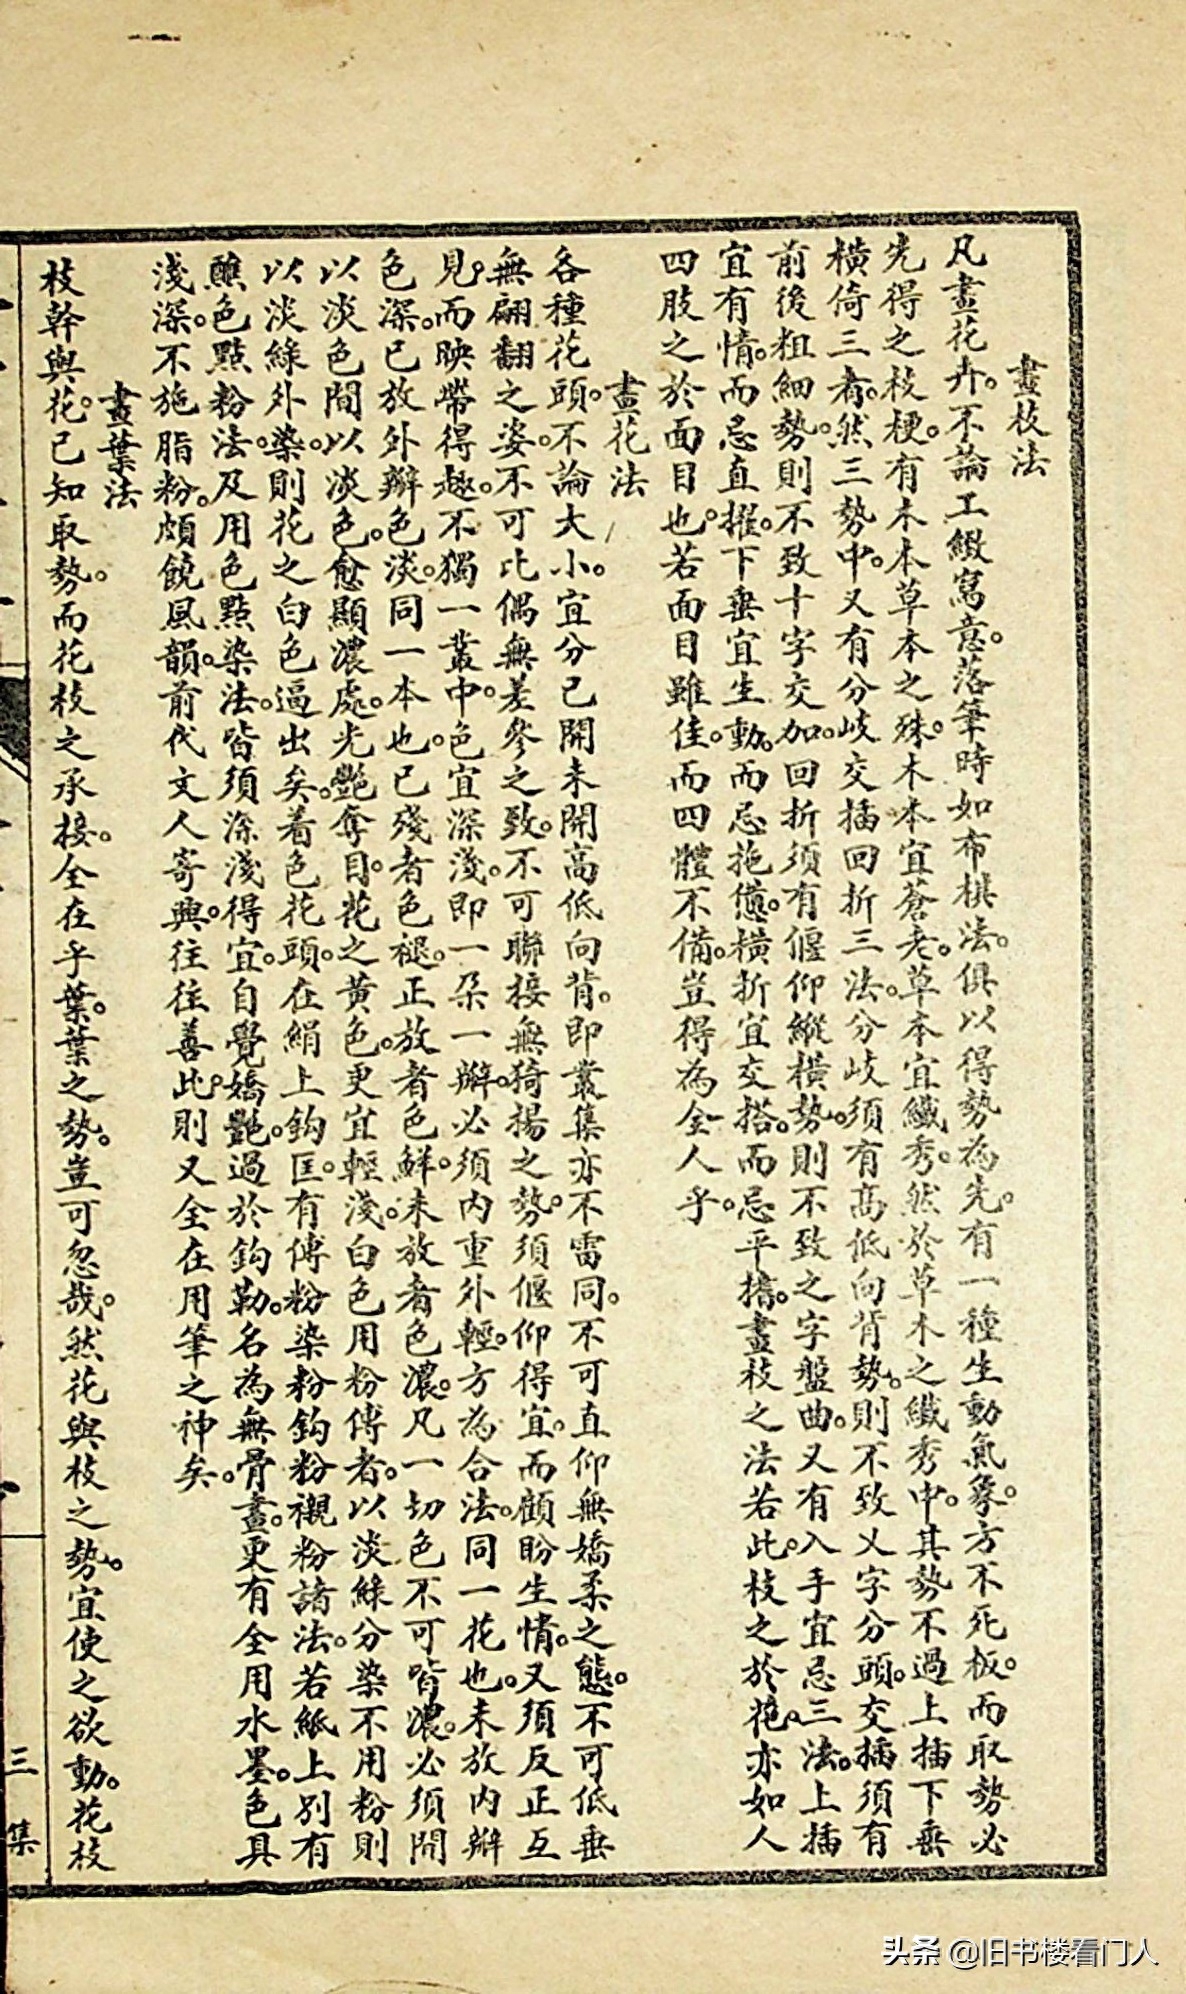 畫枝法
凡畫花卉。不論工緻寫意。落筆時如布棋法。俱以得勢為先。有一種生動氣象。方不死板。而取勢必
先得之枝梗。有木本草本之殊。木本宜蒼老。草本宜纖秀。然於草木之纖秀中。其勢不過上插下垂
橫倚三者。然三勢中。又有分岐交插回折三法。分岐須有高低向背勢。則不致乂字分頭。交插須有
前後粗細勢。則不致十字交加。回折須有偃仰縱橫勢。則不致之字盤曲。又有入手宜忌三法。上插
宜有情。而忌直擢。下垂宜生動。而忌拖憊。橫折宜交搭。而忌平攤。畫枝之法若此。枝之於花。亦如人
四肢之於面目也。若面目雖佳。而四體不備。豈得為全人乎。
畫花法
各種花頭。不論大小。宜分已開未開高低向背。即叢集亦不雷同。不可直仰無嬌柔之態。不可低垂
無翩翻之姿。不可比偶無差參之致。不可聯接無猗揚之勢。須偃仰得宜。而顧盼生情。又須反正互
見。而映帶得趣。不獨一叢中。色宜深淺。即一朵一瓣。必須內重外輕。方為合法。同一花也。未放內瓣
色深。已放外瓣色淡。同一本也。已殘者色褪。正放者色鮮。未放者色濃。凡一切色不可皆濃。必須間
以淡色間以淡色。愈顯濃處。光艷奪目。花之黃色。更宜輕淺。白色用粉傅者。以淡綠分染不用粉則
以淡綠外染。則花之白色逼出矣。着色花頭。在絹上鈎匡。有傅粉染粉鈎粉襯粉諸法。若紙上別有
醮色點粉法及用色點染法。皆須深淺得宜。自覺嬌艷。過於鈎勒。名為無骨畫。更有全用水墨。色具
淺深。不施脂粉。頗饒風韻。前代文人寄興。往往善此。則又全在用筆之神矣。
畫葉法
枝幹與花。已知取勢。而花枝之承接。全在乎葉。葉之勢。豈可忽哉。然花與枝之勢。宜使之欲動。花枝
三 集
头条 @旧书楼看门人